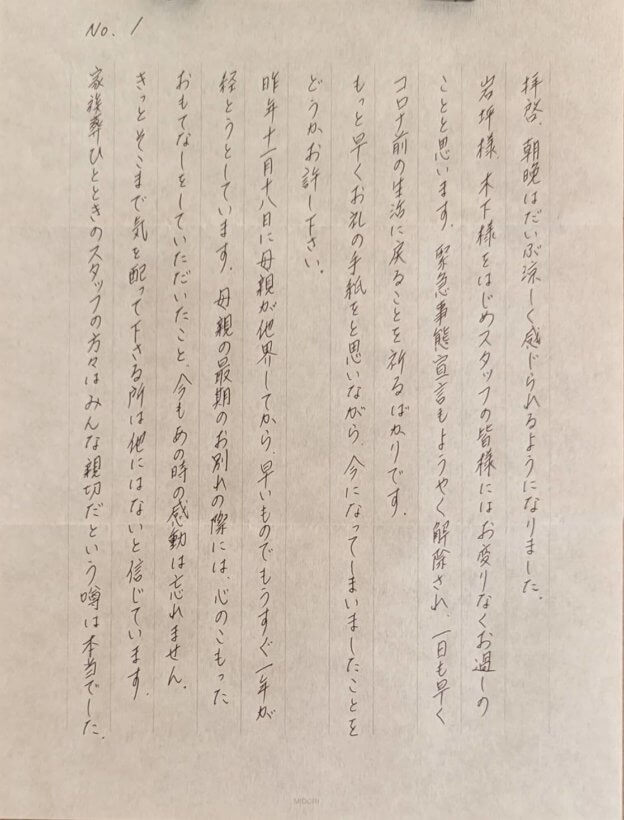 No. 1
拝啓、朝晩はだいぶ涼しく感じられるようになりました。
岩坪様、木下様をはじめスタッフの皆様にはお変りなくお過しの
ことと思います。緊急事態宣言もようやく解除され、一日も早く
コロナ前の生活に戻ることを祈るばかりです。
もっと早くお礼の手紙をと思いながら、今になってしまいましたことを
どうかお許し下さい。
昨年十一月十八日に母親が他界してから、早いものでもうすぐ一年が
経とうとしています。母親の最期のお別れの際には、心のこもった
おもてなしをしていただいたこと、今もあの時の感動は忘れません。
きっとそこまで気を配って下さる所は他にはないと信じています。
家族葬ひとときのスタッフの方々はみんな親切だという噂は本当でした。
MIDORI